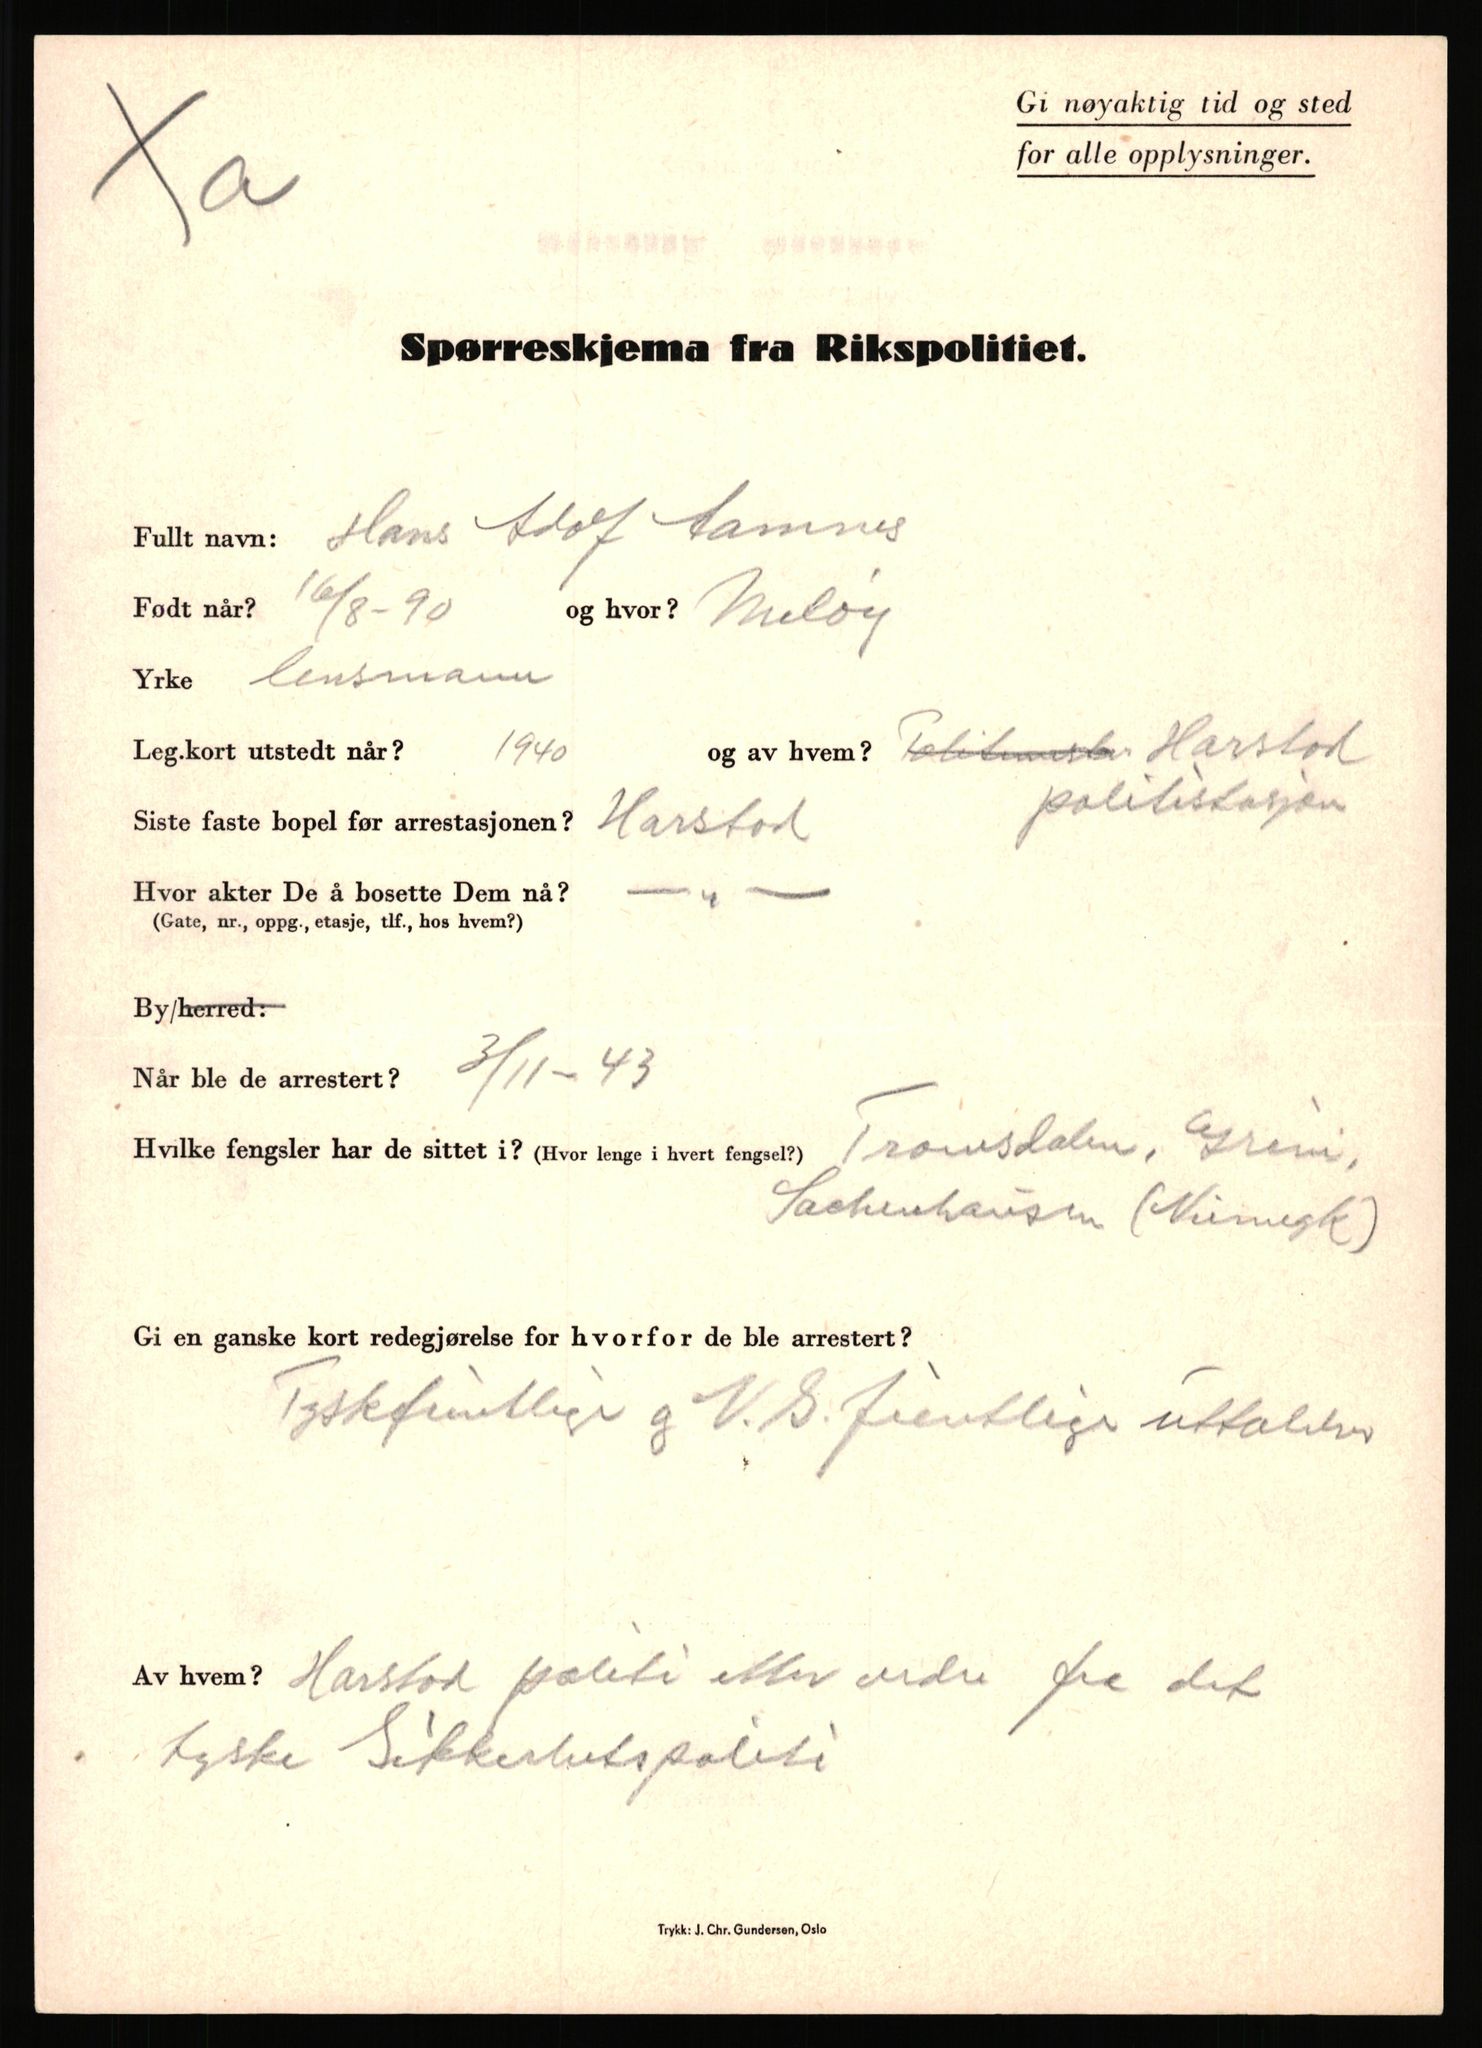 Xa
Gi nøyaktig tid og sted
for alle opplysninger.
Spørreskjema fra Rikspolitiet.
Fullt navn: Hans Adolf Aamnes
Født når? 16/8-90 og hvor? Meløy
Yrke lensmann
Leg.kort utstedt når? 1940 og av hvem? Politimester Harstad
politistasjon
Siste faste bopel før arrestasjonen? Harstad
Hvor akter De å bosette Dem nå? — " —
(Gate, nr., oppg., etasje, tlf., hos hvem?)
By/herred:
Når ble de arrestert? 3/11-43
Hvilke fengsler har de sittet i? (Hvor lenge i hvert fengsel?) Tromsdalen, Grini,
Sachenhausen (Niemegk)
Gi en ganske kort redegjørelse for hvorfor de ble arrestert?
Tyskfientlige og N.S. fientlige uttalelser
Av hvem? Harstad politi etter ordre fra det
tyske Sikkerhetspoliti
Trykk: J. Chr. Gundersen, Oslo